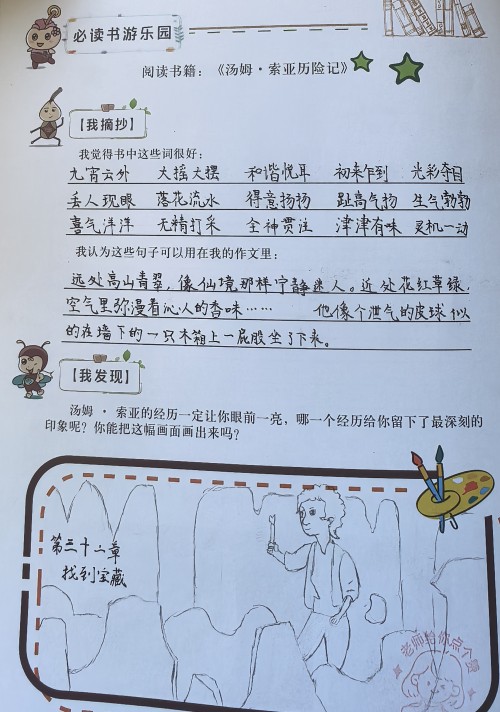 必读书游乐园
阅读书籍：《汤姆·索亚历险记》
【我摘抄】
我觉得书中这些词很好：
九宵云外 大摇大摆 和谐悦耳 初来乍到 光彩夺目
丢人现眼 落花流水 得意扬扬 趾高气扬 生气勃勃
喜气洋洋 无精打采 全神贯注 津津有味 灵机一动
我认为这些句子可以用在我的作文里：
远处高山青翠，像仙境那样宁静迷人。近处花红草绿，
空气里弥漫着沁人的香味…… 他像个泄气的皮球似
的在墙下的一只木箱上一屁股坐了下来。
【我发现】
汤姆·索亚的经历一定让你眼前一亮，哪一个经历给你留下了最深刻的
印象呢？你能把这幅画面画出来吗？
第三十二章
找到宝藏
老师给你点个赞